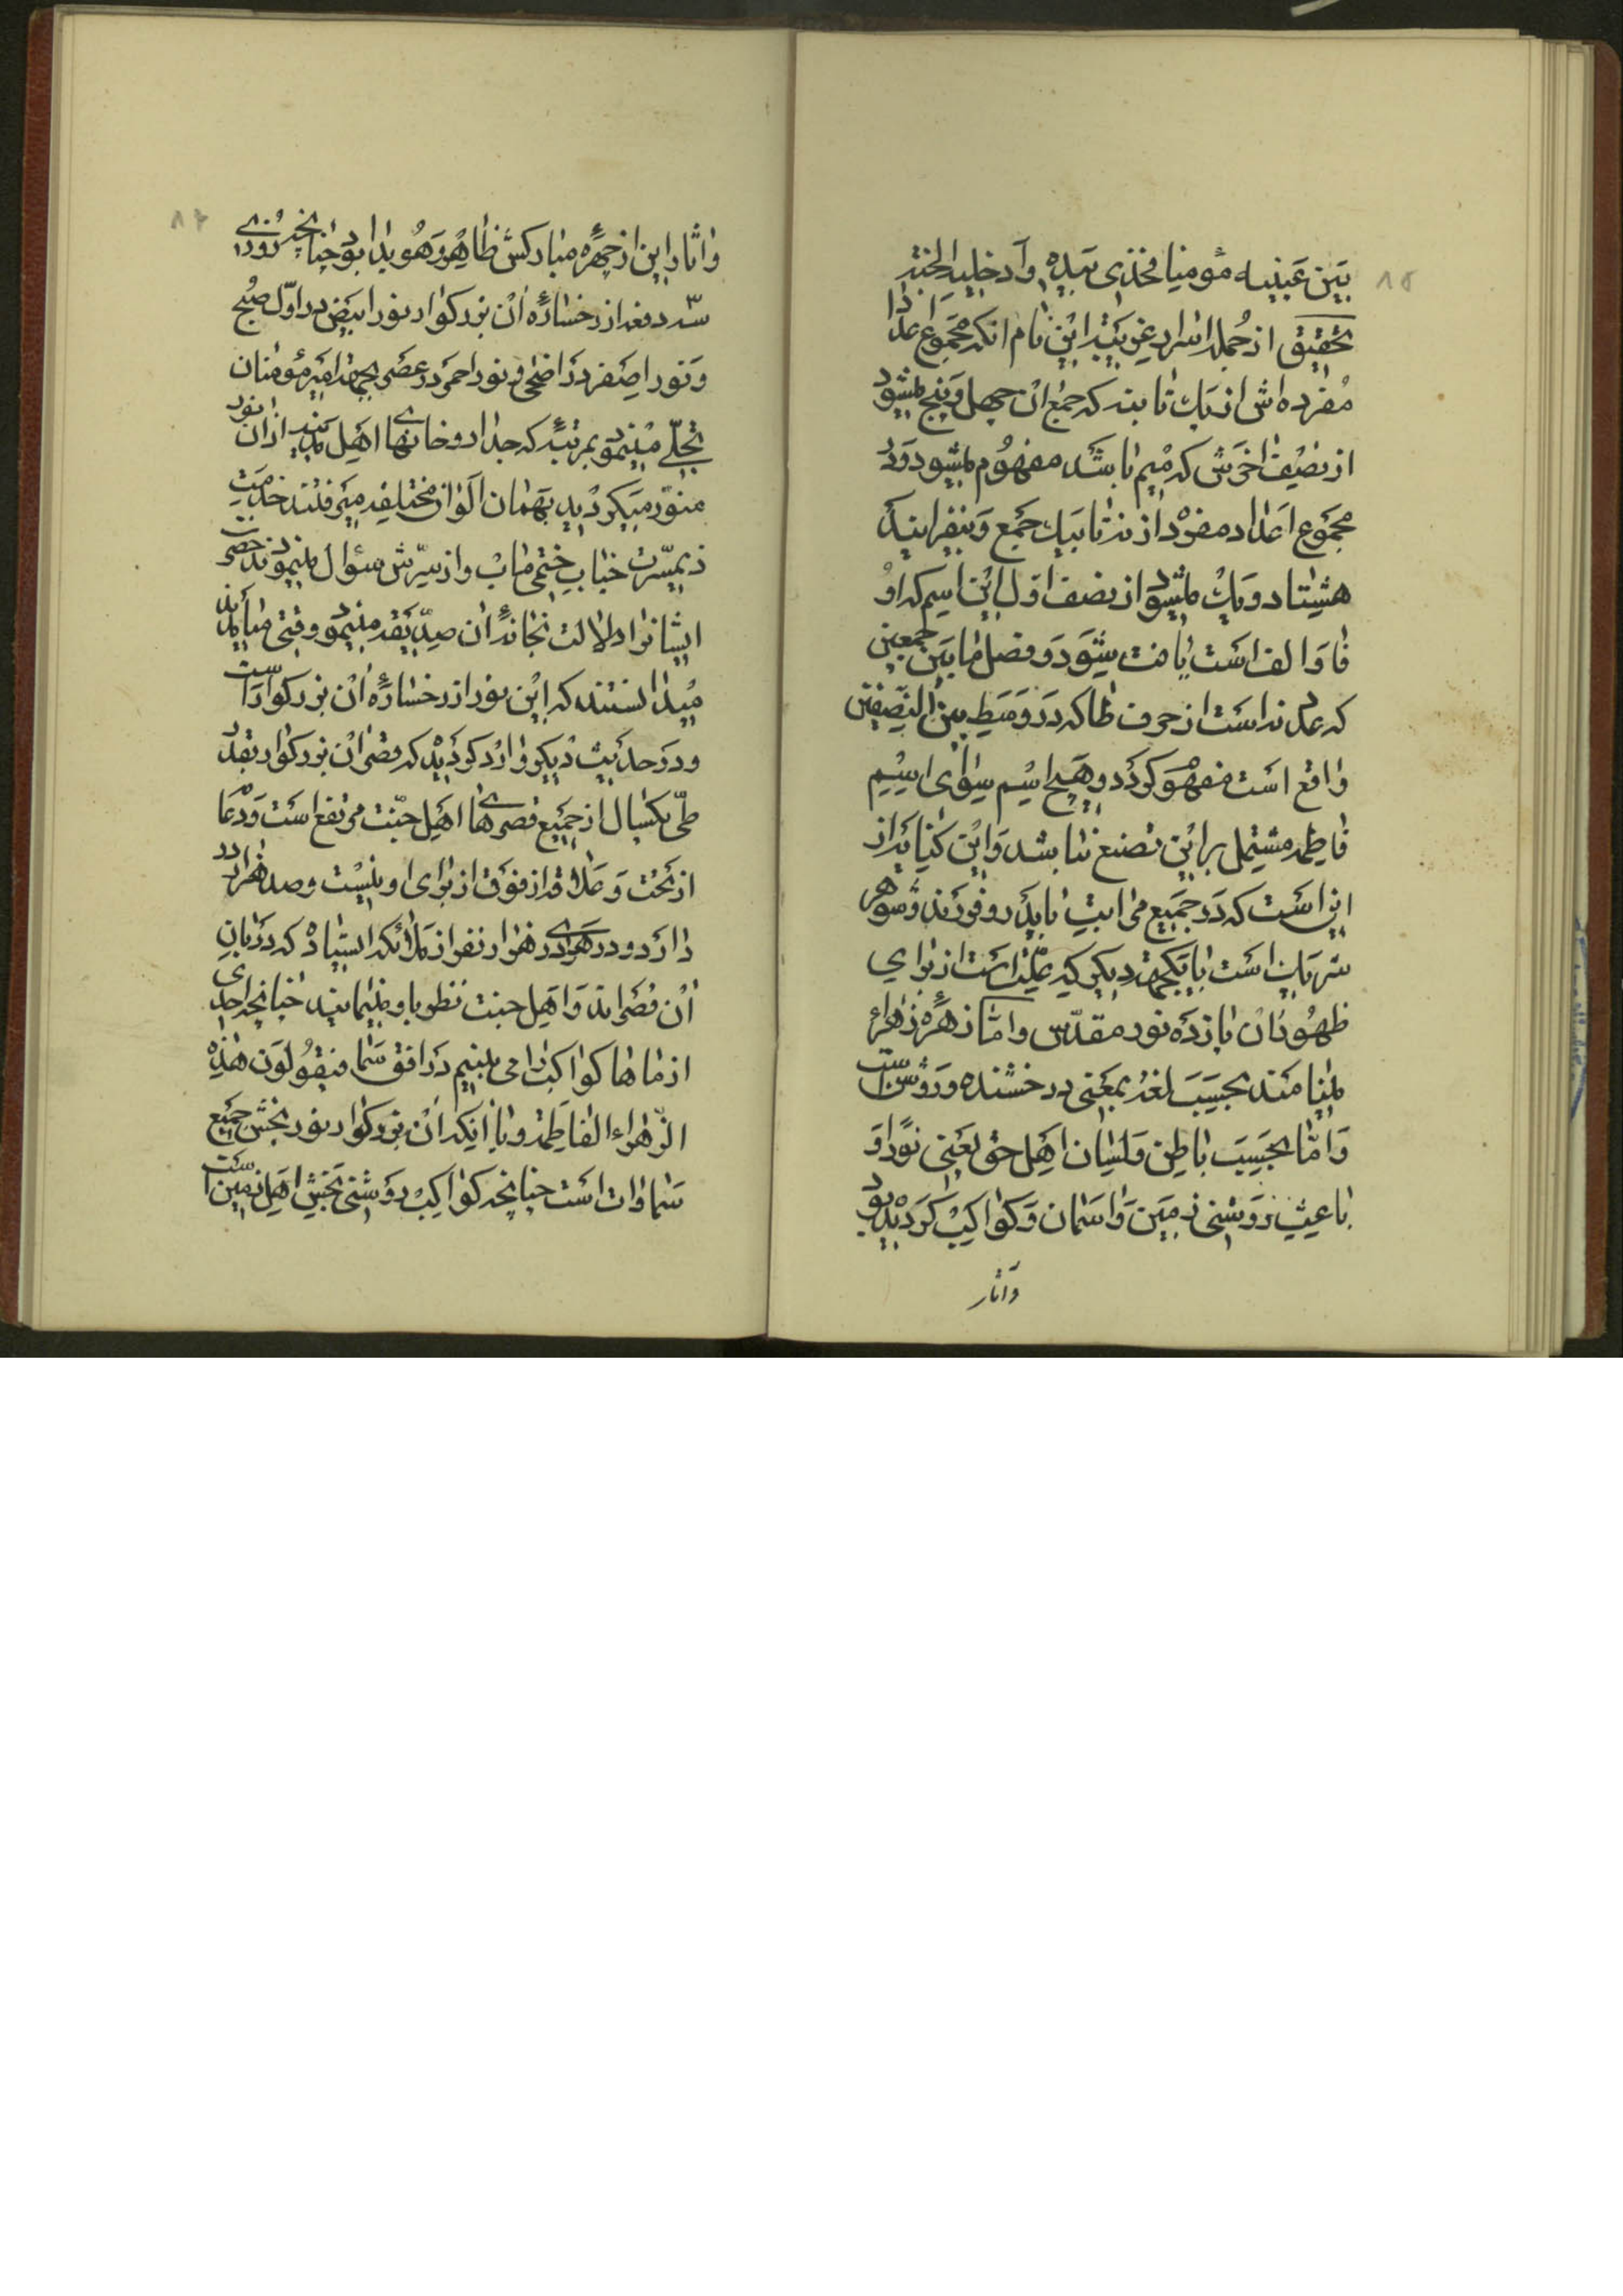 بین عینیه مؤمنا فخذی بیده وادخلیه الجنة
تحقیق از جمله اسرار غریبه این نام آنکه مجموع اعداد
مفرده اش از یک تا نه که جمع آن چهل و پنج میشود
از نصف اخرش که میم باشد مفهوم میشود و در
مجموع اعداد مفرد از نه تا بیک جمع و
هشتاد و یک میشود از نصف اول این اسم که او
فا و الف است یافت شود و فصل ما بین جمعین
که عدد نه است از حرف طا که در وسط بین النصفین
واقع است مفهوم گردد و هیچ اسم سوای اسم
فاطمه مشتمل بر این تصنع نباشد و این کنایه از
این است که در جمیع مراتب با پدر و فرزند و شوهر
شریک است با یکجهة دیگر که علّت است از برای
ظهور آن یازده نور مقدّس و اما زهره زهراء
مینامند بحسب لغة بمعنی درخشنده و روشن است
و اما بحسب باطن و لسان اهل حق یعنی نور او
باعث روشنی زمین و آسمان و کواکب گردیده بود
و آثار
۱۵
و آثار این از چهره مبارکش ظاهر و هویدا بود چنانچه روزی
سه دفعه از رخساره آن بزرگوار نور ابیض در اوّل صبح
و نور اصفر در اضحی و نور احمر در عصر بجهة امیر مؤمنان
تجلّی مینمود بمرتبه که جدار و خانهای اهل مدینه از آن نور
منوّر میگردید بهمان الوان مختلفه میرفتند خدمت
ذیمسّرت جناب ختمی مآب و از سرّش سؤال مینمودند حضرت
ایشانرا دلالت بخانه آن صدّیقه مینمود وقتی میآمدند
میدانستند که این نور از رخساره آن بزرگوار است
و در حدیث دیگر وارد گردیده که قصر آن بزرگوار بقدر
طی یکسال از جمیع قصرهای اهل جنّت مرتفع است و دعا
از تحت و علاقه از فوق از برای او نیست و صد هزار در
دارد و در هر دری هزار نفر از ملائکه ایستاده که دربان
آن قصراند و اهل جنت نظر باو مینمایند چنانچه احدی
از ماها کواکب را می بینیم در افق سما فیقولون هذه
الزّهراء الفاطمه و یا اینکه آن بزرگوار نور بخش جمیع
سماوات است چنانچه کواکب روشنی بخش اهل زمین است